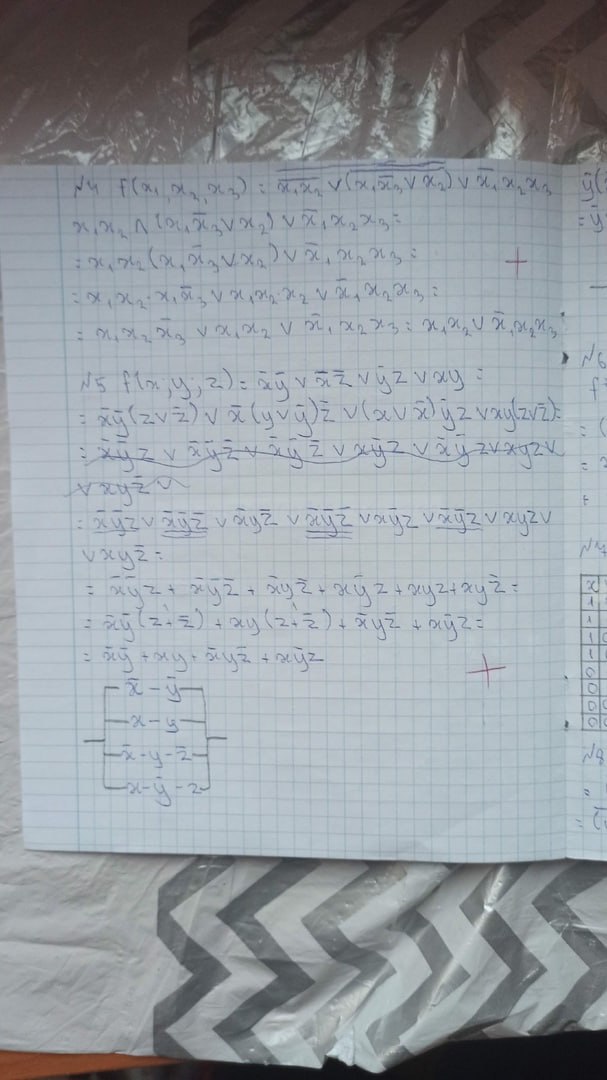 №4 f(x₁, x₂, x₃) = \overline{\overline{x₁x₂} ∨ \overline{(x₁x̄₃ ∨ x₂)}} ∨ x̄₁x₂x₃
x₁x₂ ∧ (x₁x̄₃ ∨ x₂) ∨ x̄₁x₂x₃ =
= x₁x₂(x₁x̄₃ ∨ x₂) ∨ x̄₁x₂x₃ =
+
= x₁x₂·x₁x̄₃ ∨ x₁x₂·x₂ ∨ x̄₁x₂x₃ =
= x₁x₂x̄₃ ∨ x₁x₂ ∨ x̄₁x₂x₃ = x₁x₂ ∨ x̄₁x₂x₃
№5 f(x, y, z) = x̄ȳ ∨ x̄z̄ ∨ ȳz ∨ xy =
= x̄ȳ(z ∨ z̄) ∨ x̄(y ∨ ȳ)z̄ ∨ (x ∨ x̄)ȳz ∨ xy(z ∨ z̄) =
= x̄ȳz̄ ∨ x̄ȳz̄ ∨ x̄yz̄ ∨ x̄ȳz̄ ∨ xȳz ∨ x̄ȳz ∨ xyz ∨
∨ xyz̄ =
= x̄ȳz + x̄ȳz̄ + x̄yz̄ + xȳz + xyz + xyz̄ =
= x̄ȳ(z + z̄) + xy(z + z̄) + x̄yz̄ + xȳz =
= x̄ȳ + xy + x̄yz̄ + xȳz
+
x̄ – ȳ
x – y
x̄ – y – z̄
x – ȳ – z
№6
f
№7
x
1
1
1
1
0
0
0
0
№8